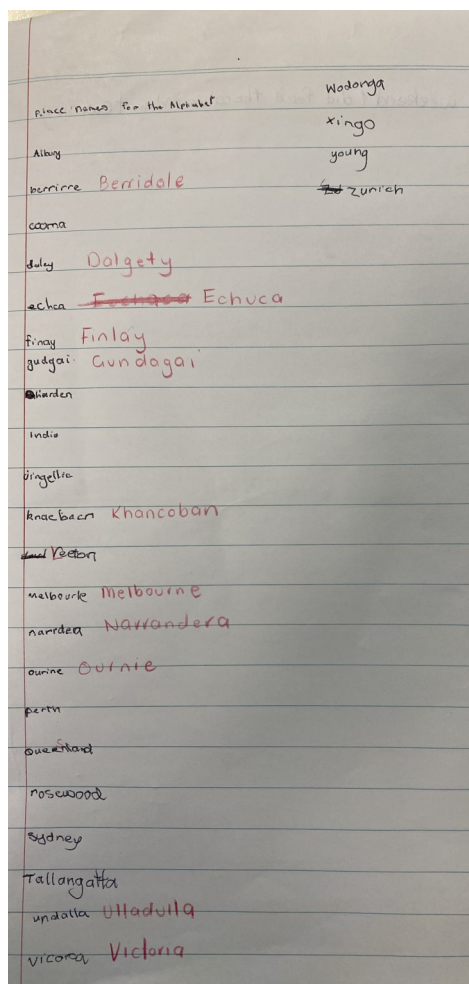 Place names for the Alphabet
Albury
berrirre Berridale
cooma
duley Dalgety
echca Echuca
finay Finlay
gudgai Gundagai
Harden
India
jingellic
knacbacn Khancoban
Leeton
Melbourle Melbourne
narrdea Narrandera
ourine Ournie
perth
Queensland
rosewood
sydney
Tallangatta
undalla Ulladulla
vicorea Victoria
Wodonga
xingo
young
zurich